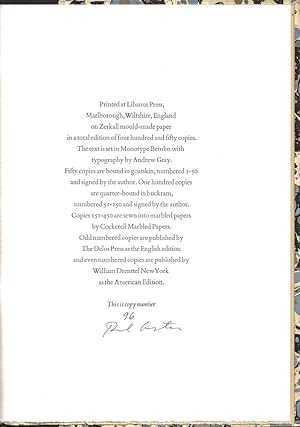 Printed at Libanus Press,
Marlborough, Wiltshire, England
on Zerkall mould-made paper
in a total edition of four hundred and fifty copies.
The text is set in Monotype Bembo with
typography by Andrew Gray.
Fifty copies are bound in goatskin, numbered 1-50
and signed by the author. One hundred copies
are quarter-bound in buckram,
numbered 51-150 and signed by the author.
Copies 151-450 are sewn into marbled papers
by Cockerell Marbled Papers.
Odd numbered copies are published by
The Delos Press as the English edition
and even numbered copies are published by
William Drenttel New York
as the American Edition.
This is copy number
96